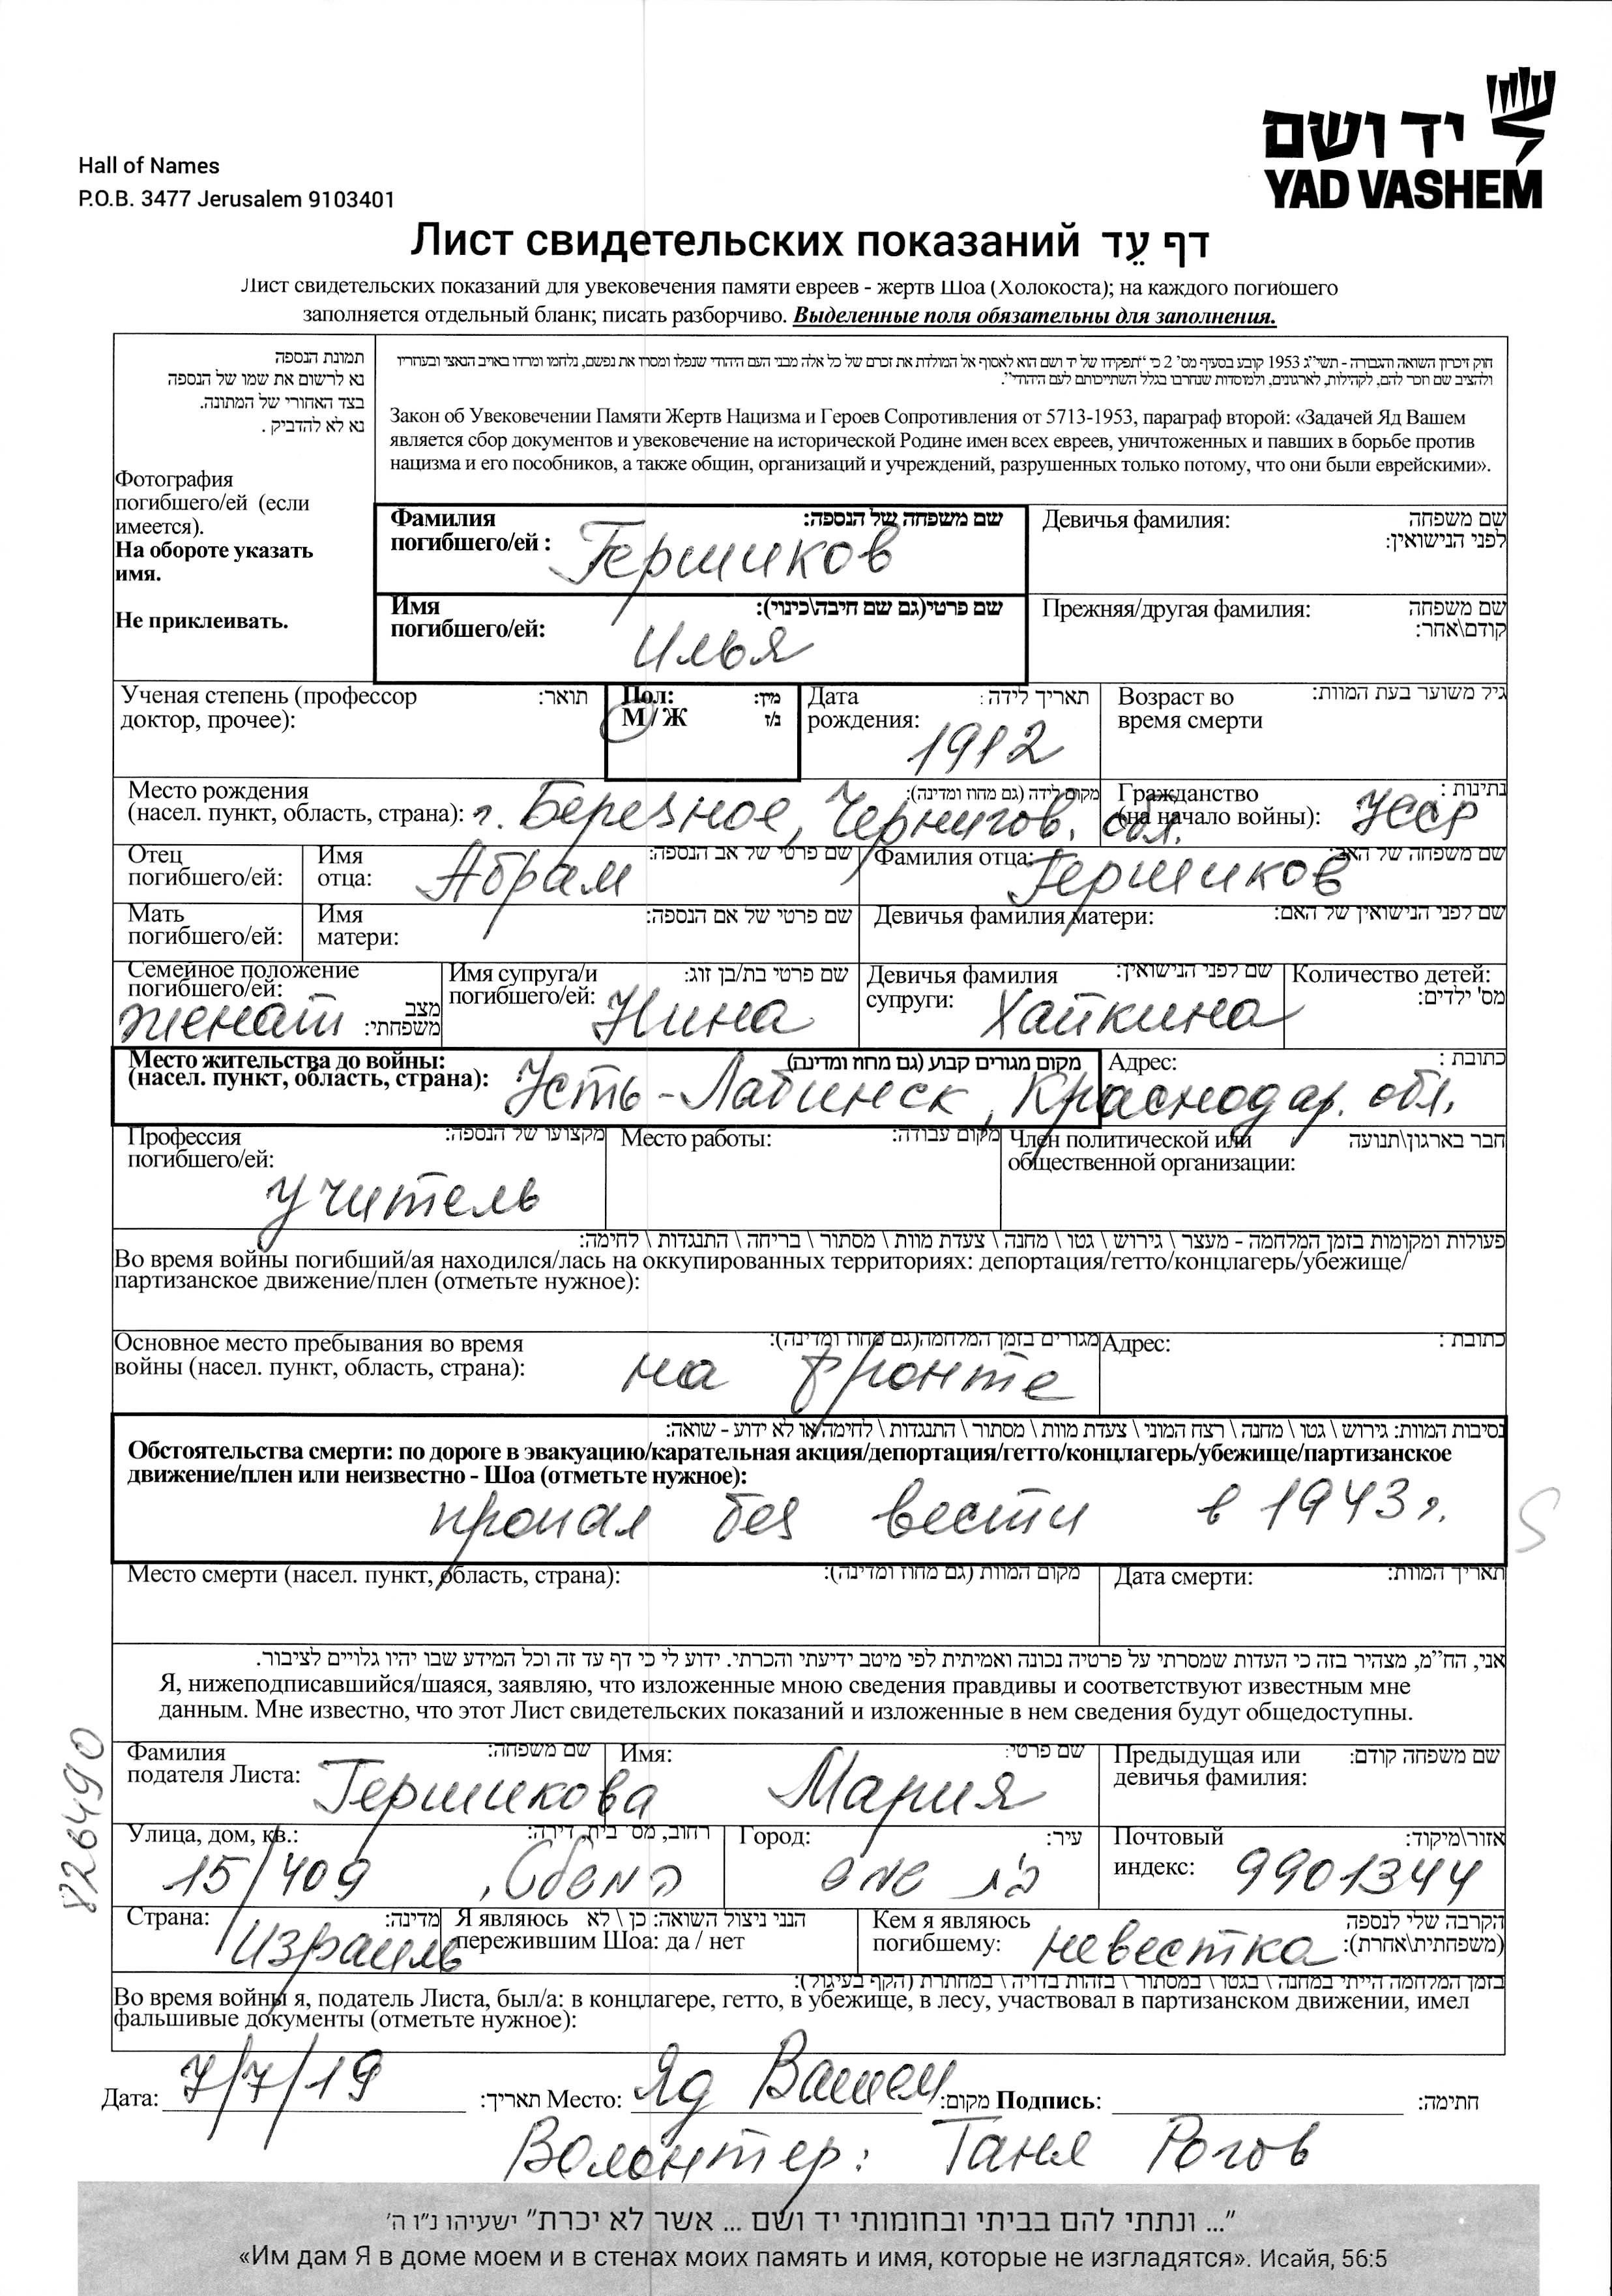 יד ושם
YAD VASHEM
Hall of Names
P.O.B. 3477 Jerusalem 9103401
Лист свидетельских показаний דף עֵד
Лист свидетельских показаний для увековечения памяти евреев - жертв Шоа (Холокоста); на каждого погибшего
заполняется отдельный бланк; писать разборчиво. Выделенные поля обязательны для заполнения.
תמונת הנספה
נא לרשום את שמו של הנספה
בצד האחורי של המתונה.
נא לא להדביק .
Фотография
погибшего/ей (если
имеется).
На обороте указать
имя.
Не приклеивать.
חוק זיכרון השואה והגבורה - תשי״ג 1953 קובע בסעיף מס' 2 כי ״תפקידו של יד ושם הוא לאסוף אל המולדת את זכרם של כל אלה מבני העם היהודי שנפלו ומסרו את נפשם, נלחמו ומרדו באויב הנאצי ובעוזריו
ולהציב שם וזכר להם, לקהילות, לארגונים, ולמוסדות שנחרבו בגלל השתייכותם לעם היהודי״.
Закон об Увековечении Памяти Жертв Нацизма и Героев Сопротивления от 5713-1953, параграф второй: «Задачей Яд Вашем
является сбор документов и увековечение на исторической Родине имен всех евреев, уничтоженных и павших в борьбе против
нацизма и его пособников, а также общин, организаций и учреждений, разрушенных только потому, что они были еврейскими».
Фамилия שם משפחה של הנספה:
погибшего/ей : Гершиков
Девичья фамилия: שם משפחה
לפני הנישואין:
Имя שם פרטי(גם שם חיבה\כינוי):
погибшего/ей: Илья
Прежняя/другая фамилия: שם משפחה
קודם\אחר:
Ученая степень (профессор תואר:
доктор, прочее):
Пол: מין:
М / Ж ז/נ
Дата תאריך לידה :
рождения: 1912
Возраст во גיל משוער בעת המוות:
время смерти
Место рождения מקום לידה (גם מחוז ומדינה):
(насел. пункт, область, страна): г. Березное, Чернигов. обл.
Гражданство נתינות :
(на начало войны): УССР
Отец
погибшего/ей:
Имя שם פרטי של אב הנספה:
отца: Абрам
Фамилия отца: שם משפחה של האב:
Гершиков
Мать
погибшего/ей:
Имя שם פרטי של אם הנספה:
матери:
Девичья фамилия матери: שם לפני הנישואין של האם:
Семейное положение
погибшего/ей: מצב
женат משפחתי:
Имя супруга/и שם פרטי בת/בן זוג:
погибшего/ей: Нина
Девичья фамилия שם לפני הנישואין:
супруги: Хайкина
Количество детей:
מס' ילדים:
Место жительства до войны: מקום מגורים קבוע (גם מחוז ומדינה)
(насел. пункт, область, страна): Усть-Лабинск, Краснодар. обл.
Адрес: כתובת :
Профессия מקצועו של הנספה:
погибшего/ей:
учитель
Место работы: מקום עבודה:
Член политической или חבר בארגון\תנועה
общественной организации:
פעולות ומקומות בזמן המלחמה - מעצר \ גירוש \ גטו \ מחנה \ צעדת מוות \ מסתור \ בריחה \ התנגדות \ לחימה:
Во время войны погибший/ая находился/лась на оккупированных территориях: депортация/гетто/концлагерь/убежище/
партизанское движение/плен (отметьте нужное):
Основное место пребывания во время מגורים בזמן המלחמה(גם מחוז ומדינה):
войны (насел. пункт, область, страна): на фронте
Адрес: כתובת :
נסיבות המוות: גירוש \ גטו \ מחנה \ רצח המוני \ צעדת מוות \ מסתור \ התנגדות \ לחימה\או לא ידוע - שואה:
Обстоятельства смерти: по дороге в эвакуацию/карательная акция/депортация/гетто/концлагерь/убежище/партизанское
движение/плен или неизвестно - Шоа (отметьте нужное):
пропал без вести в 1943 г.
S
Место смерти (насел. пункт, область, страна): מקום המוות (גם מחוז ומדינה):
Дата смерти: תאריך המוות:
אני, הח״מ, מצהיר בזה כי העדות שמסרתי על פרטיה נכונה ואמיתית לפי מיטב ידיעתי והכרתי. ידוע לי כי דף עד זה וכל המידע שבו יהיו גלויים לציבור.
Я, нижеподписавшийся/шаяся, заявляю, что изложенные мною сведения правдивы и соответствуют известным мне
данным. Мне известно, что этот Лист свидетельских показаний и изложенные в нем сведения будут общедоступны.
826490
Фамилия שם משפחה:
подателя Листа: Гершикова
Имя: שם פרטי:
Мария
Предыдущая или שם משפחה קודם:
девичья фамилия:
Улица, дом, кв.: רחוב, מס' בית, דירה:
15/409
Город: עיר:
בית שמש
Почтовый אזור\מיקוד:
индекс: 9901344
Страна: מדינה:
Израиль
Я являюсь הנני ניצול השואה: כן \ לא
пережившим Шоа: да / нет
Кем я являюсь הקרבה שלי לנספה
погибшему: невестка (משפחתית\אחרת):
בזמן המלחמה הייתי במחנה \ בגטו \ במסתור \ בזהות בדויה \ במחתרת (הקף בעיגול):
Во время войны я, податель Листа, был/а: в концлагере, гетто, в убежище, в лесу, участвовал в партизанском движении, имел
фальшивые документы (отметьте нужное):
Дата: 7/7/19 תאריך: Место: Яд Вашем מקום: Подпись: חתימה:
Волонтер: Таня Рогов
״... ונתתי להם בביתי ובחומותי יד ושם ... אשר לא יכרת״ ישעיהו נ״ו ה'
«Им дам Я в доме моем и в стенах моих память и имя, которые не изгладятся». Исайя, 56:5